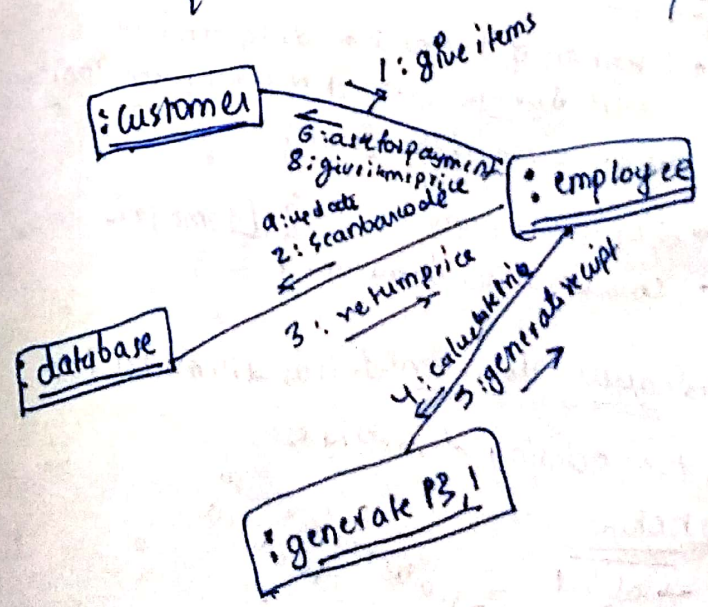 1: give items
: customer
6: ask for payment
8: give itemsprice
: employee
9: update
2: scan barcode
3: return price
: database
4: calculate
5: generate receipt
: generate